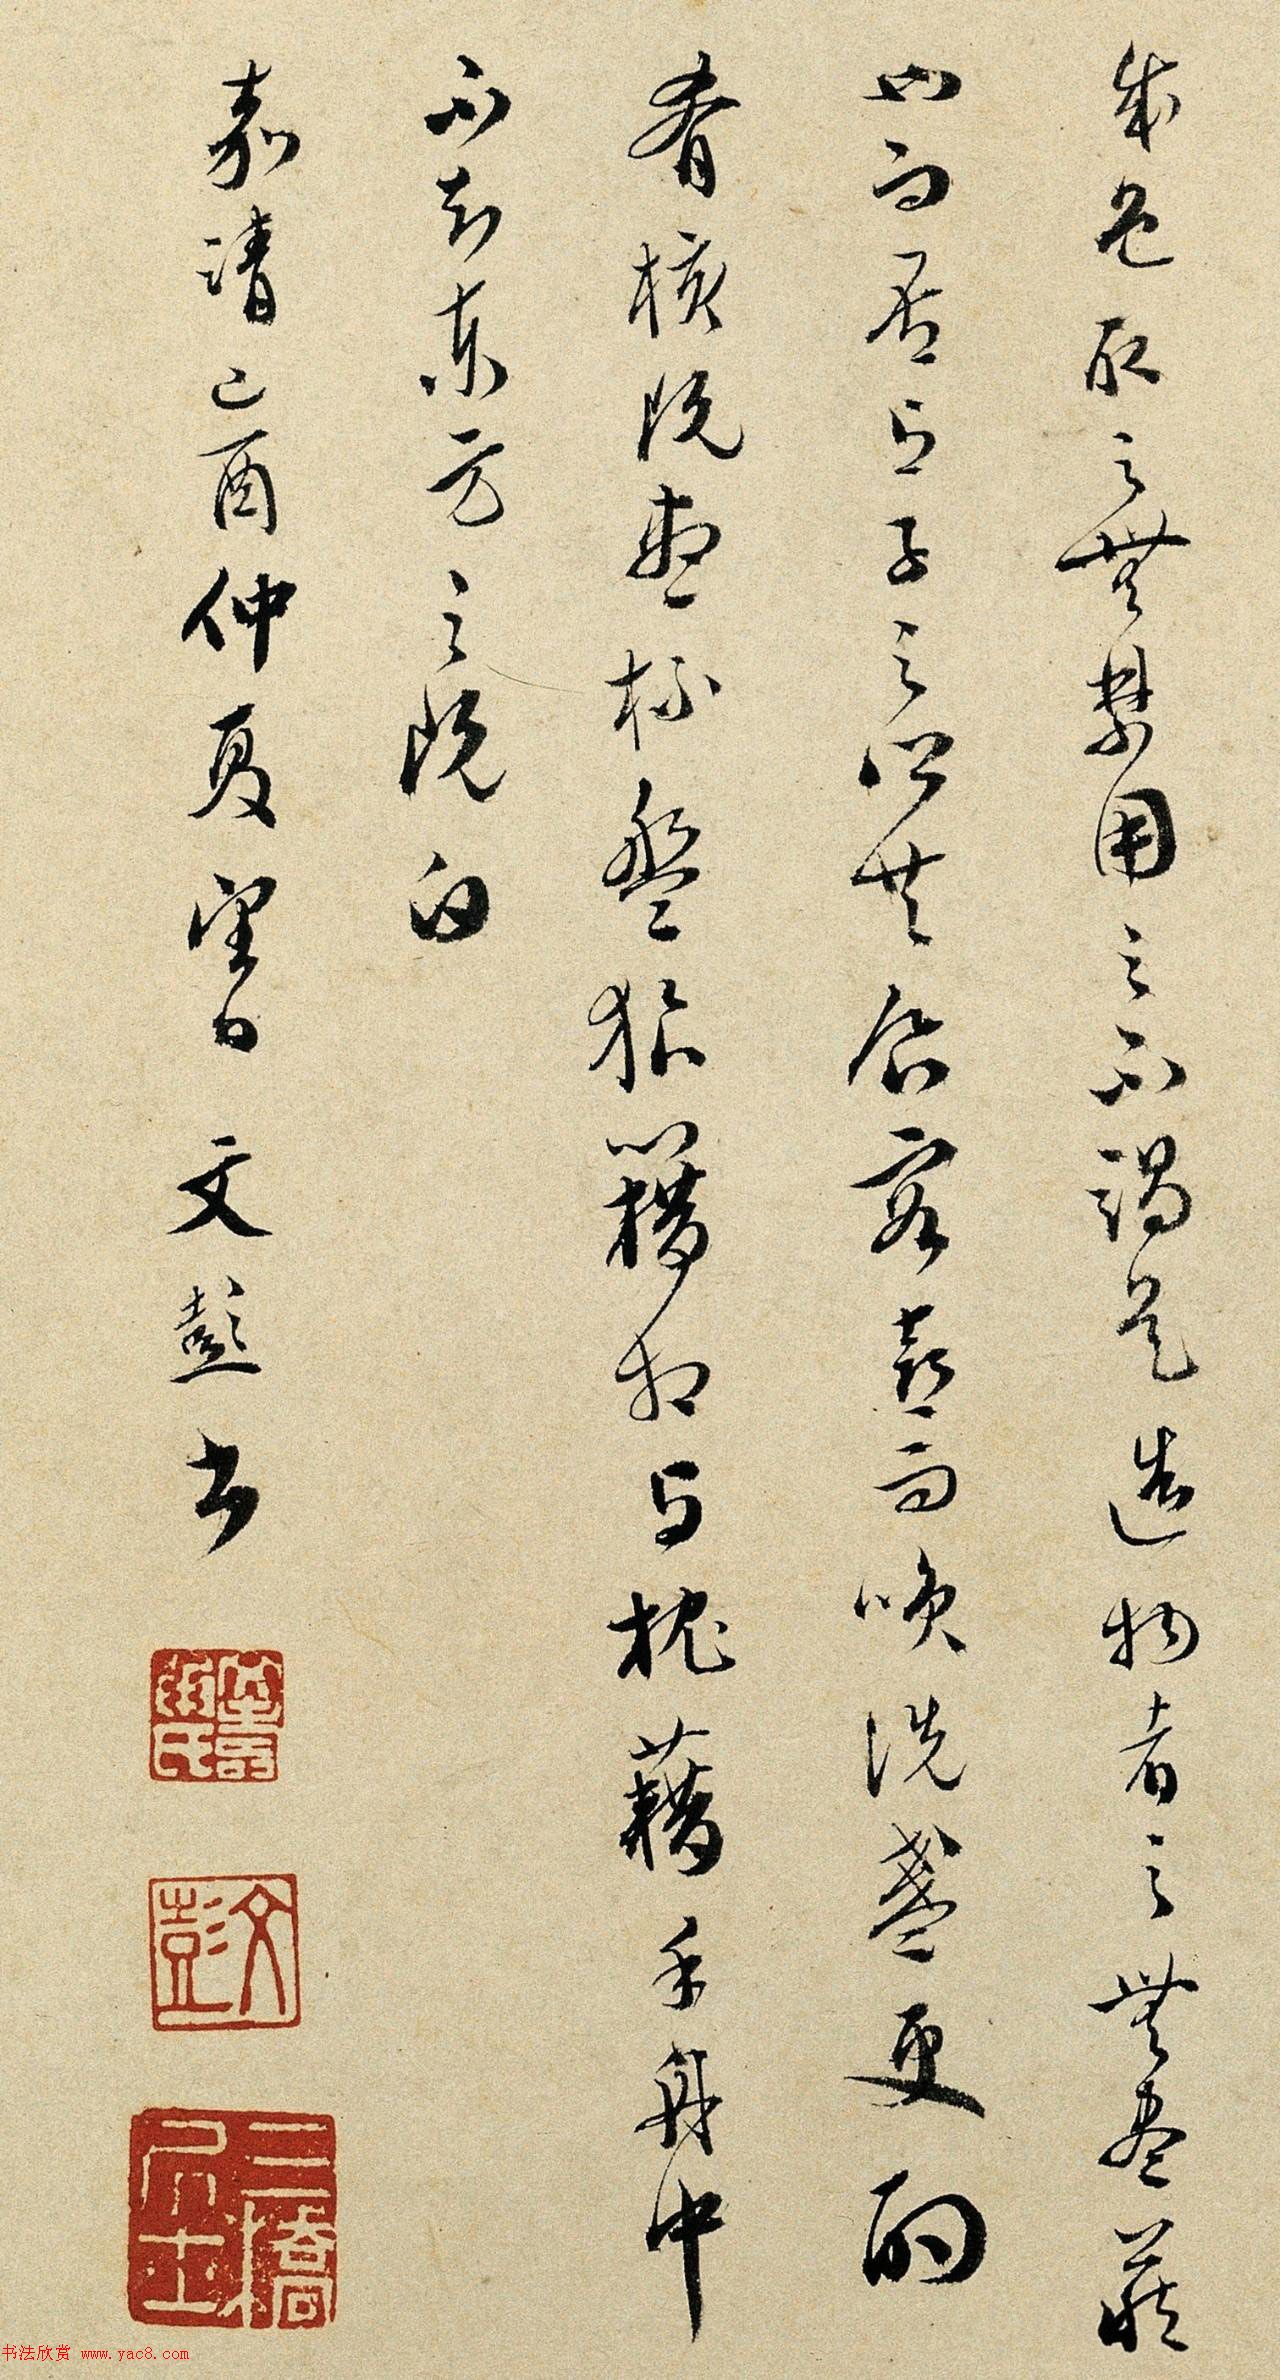 成色取之無禁用之不竭是造物者之無盡藏
也而吾与子之所共食客喜而咲洗盞更酌
肴核既盡杯盤狼籍相与枕藉乎舟中
不知東方之既白
嘉靖己酉仲夏望日 文彭書
文壽承氏
文彭
三橋居士
书法欣赏 www.yac8.com